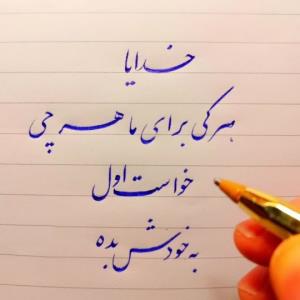 خدایا
هرکی برای ما هر چی
خواست اول
به خودش بده